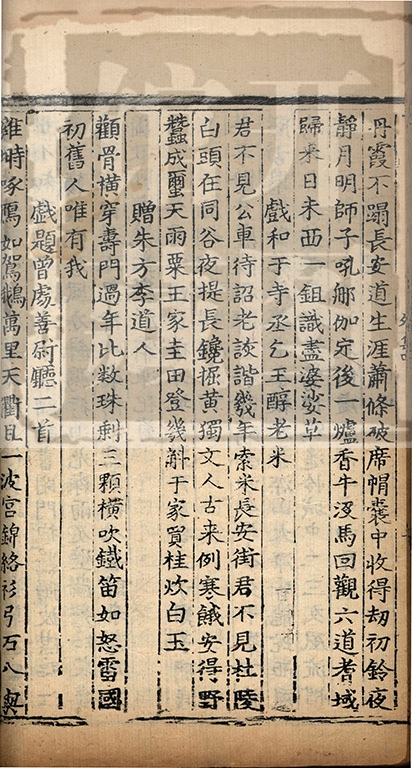 丹霞不蹋長安道生涯蕭條破席帽囊中收得劫初鈴夜
靜月明師子吼那伽定後一爐香牛沒馬回觀六道耆域
歸来日未西一鉏識盡婆娑草
戲和于寺丞乞王醇老米
君不見公車待詔老詼諧幾年索米長安街君不見杜陵
白頭在同谷夜提長鑱掘黃獨文人古来例寒餓安得野
蠶成璽天雨粟王家圭田登幾斛于家買桂炊白玉
贈朱方李道人
顴骨橫穿壽門過年比数珠剩三顆橫吹鐵笛如怒雷國
初舊人唯有我
戲題曾處善尉聽二首
維時啄鴈如駕鵝萬里天衢且一波宮錦絡衫弓石八與